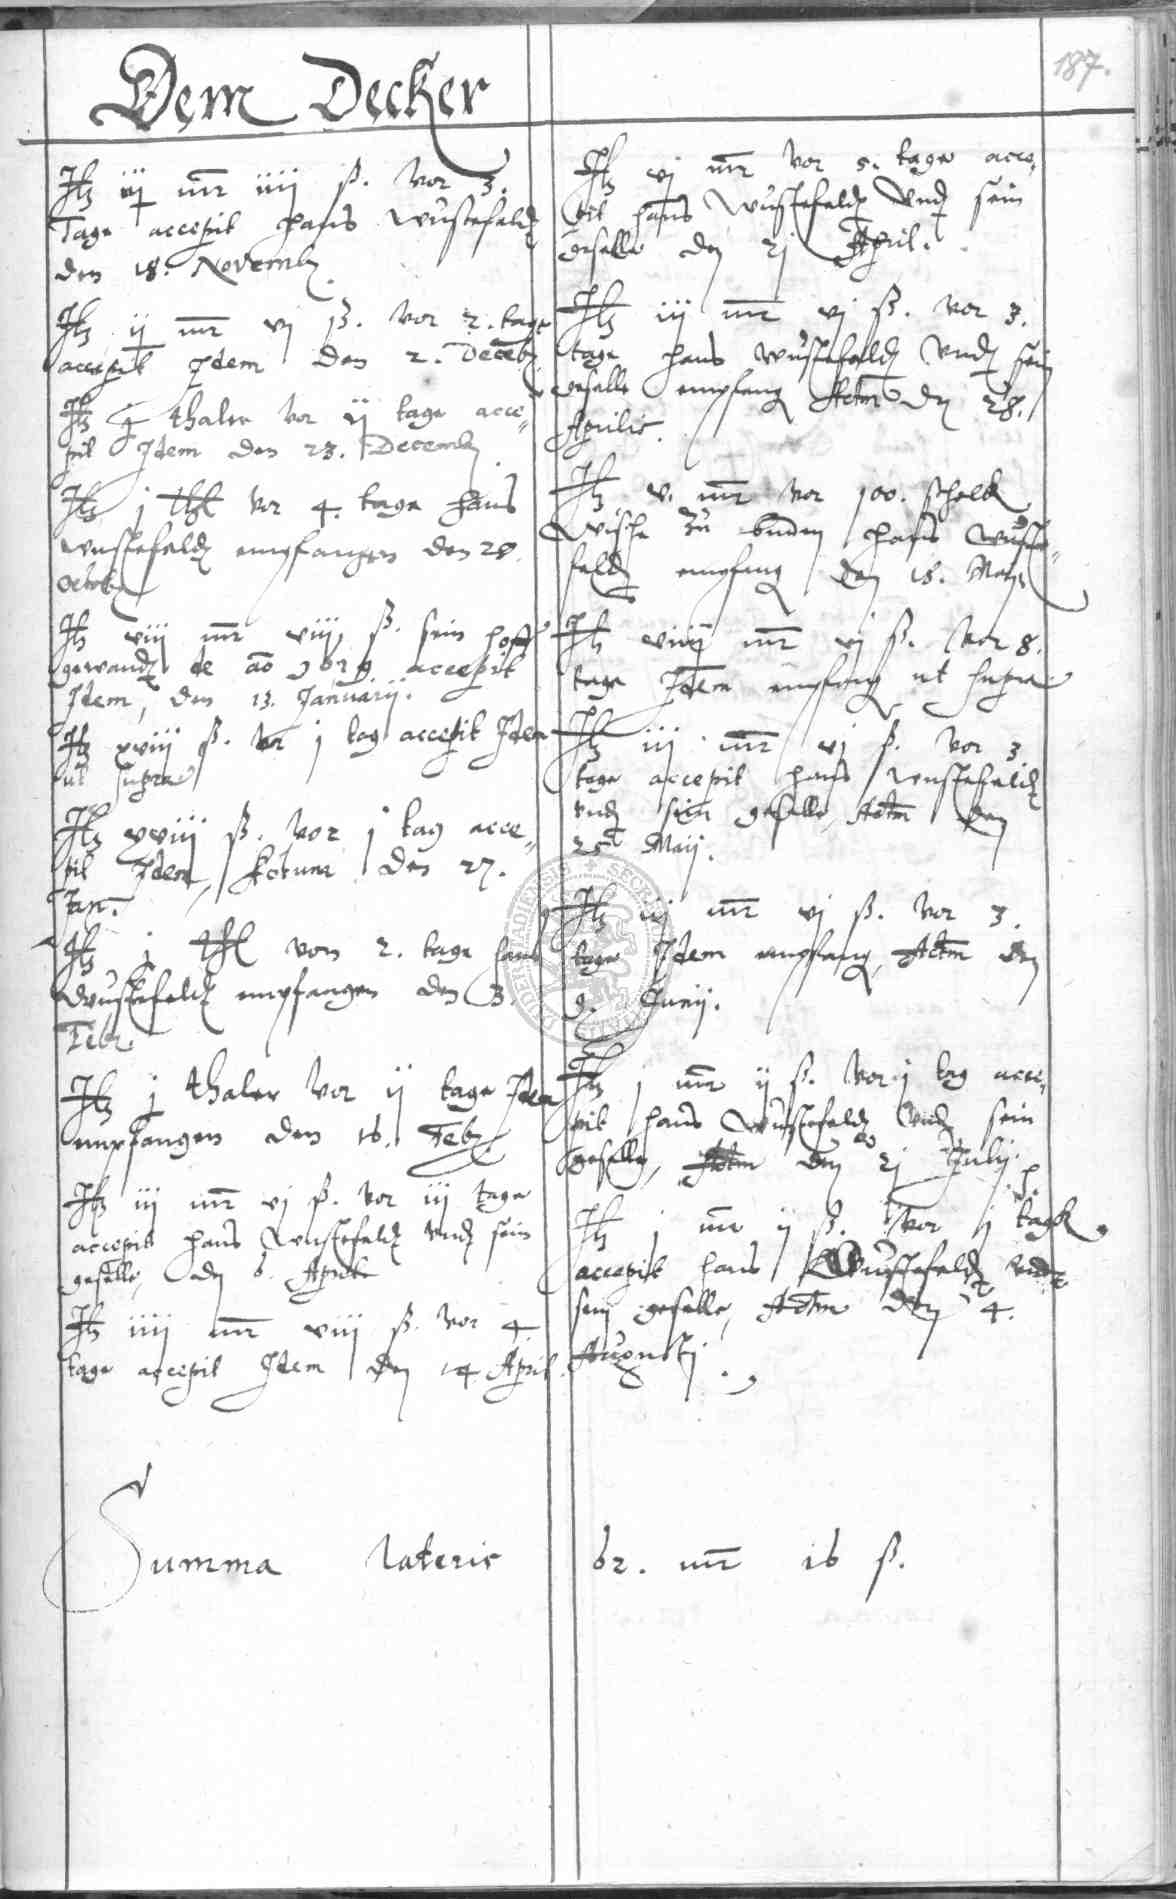 187.
Dem Decker
Itz iij mr iiij ß. vor 3.
Tage accepit Hans Wustefeldt
den 18. Novemb.
Itz ij mr vj ß. vor 2. tage
accepit Idem den 2. Deceb.
Itz j thaler vor ij tage acce-
pit Idem den 23. Decemb.
Itz j thl vor 4. tage Hans
Wustefeldt empfangen den 28.
Octob.
Itz viij mr viij ß. sein hoff
gewandt de ao 1629 accepit
Idem, den 13. Januarij.
Itz xviij ß. vor j tag accepit Idem
ut supra
Itz xviij ß. vor j tag acce-
pit Idem, Actum den 27.
Jan.
Itz j thl von 2. tage Hans
Wustefeldt empfangen den 3.
Febr.
Itz j thaler vor ij tage Idem
empfangen den 16. Feb.
Itz iij mr vj ß. vor iij tage
accepit Hans Wustefeldt und sein
geselle, den 6. April
Itz iiij mr viij ß. vor 4.
tage accepit Idem den 14 April.
Itz vj mr vor 5. tage acce-
pit Hans Wustefeldt Und sein
geselle den 21 April.
Itz iij mr vj ß. vor 3.
tage Hans Wustefeldt Und sein
geselle empfang Actm den 28.
Aprilis.
Itz v. mr vor 100. scholb
Wische zu binden Hans Wuste-
feldt empfang den 18. Maij
Itz viiij mr vj ß. vor 8.
tage Idem empfang ut supra
Itz iij mr vj ß. vor 3
tage accepit Hans Wustefeldt
und sein geselle, Actm den
25 Maij.
Itz iij mr vj ß. vor 3.
tage Idem empfang, Actm den
9. Junij.
Itz j mr ij ß. vor j tag acce-
pit Hans Wustefeldt Und sein
geselle, Actm den 21 Julij.
Itz j mr ij ß. vor j tagk
accepit Hans Wustefeldt Undt
sein geselle, Actm den 4.
Augusti.
Summa lateris 62. mr 16 ß.